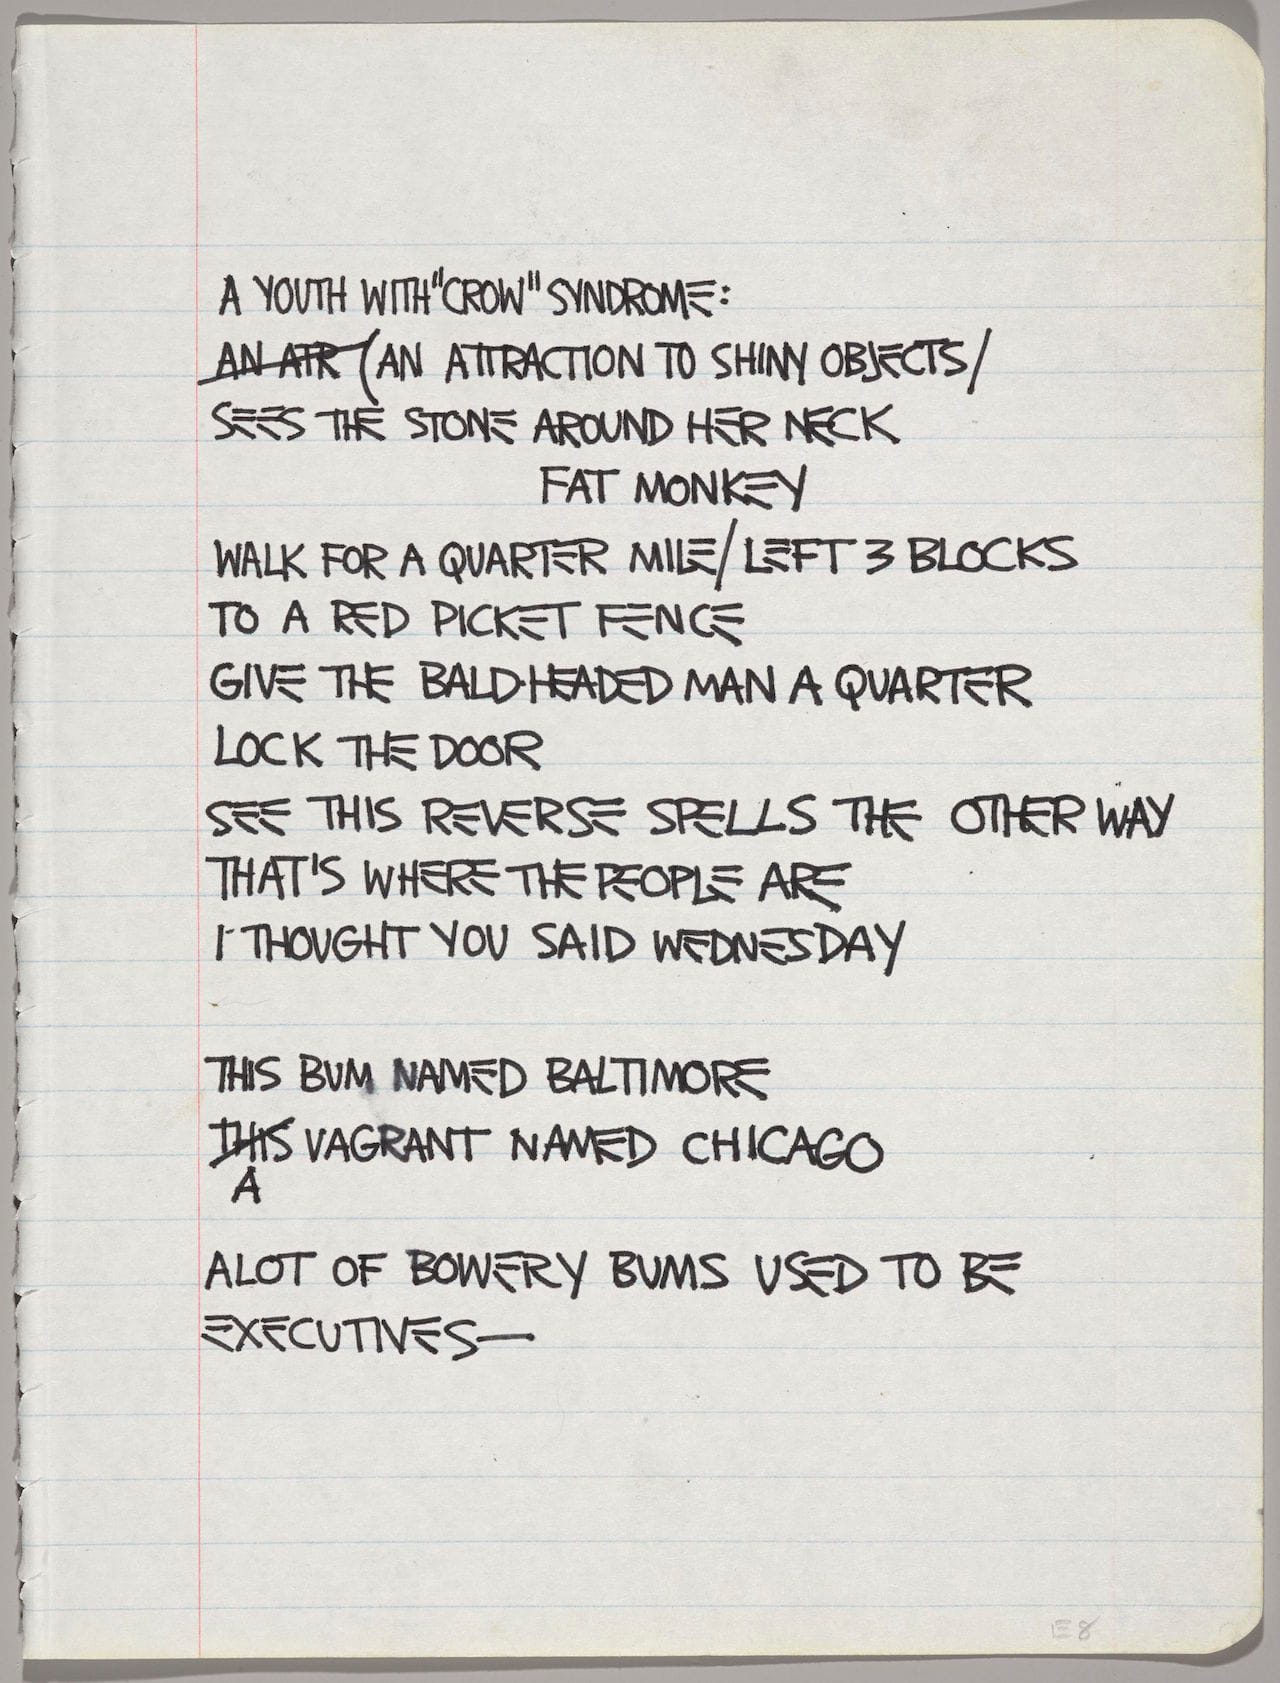 A YOUTH WITH "CROW" SYNDROME:
AN ATR (AN ATTRACTION TO SHINY OBJECTS/
SEES THE STONE AROUND HER NECK
FAT MONKEY
WALK FOR A QUARTER MILE/LEFT 3 BLOCKS
TO A RED PICKET FENCE
GIVE THE BALD·HEADED MAN A QUARTER
LOCK THE DOOR
SEE THIS REVERSE SPELLS THE OTHER WAY
THAT'S WHERE THE PEOPLE ARE
I THOUGHT YOU SAID WEDNESDAY
THIS BUM NAMED BALTIMORE
THIS VAGRANT NAMED CHICAGO
A
ALOT OF BOWERY BUMS USED TO BE
EXECUTIVES—
E8